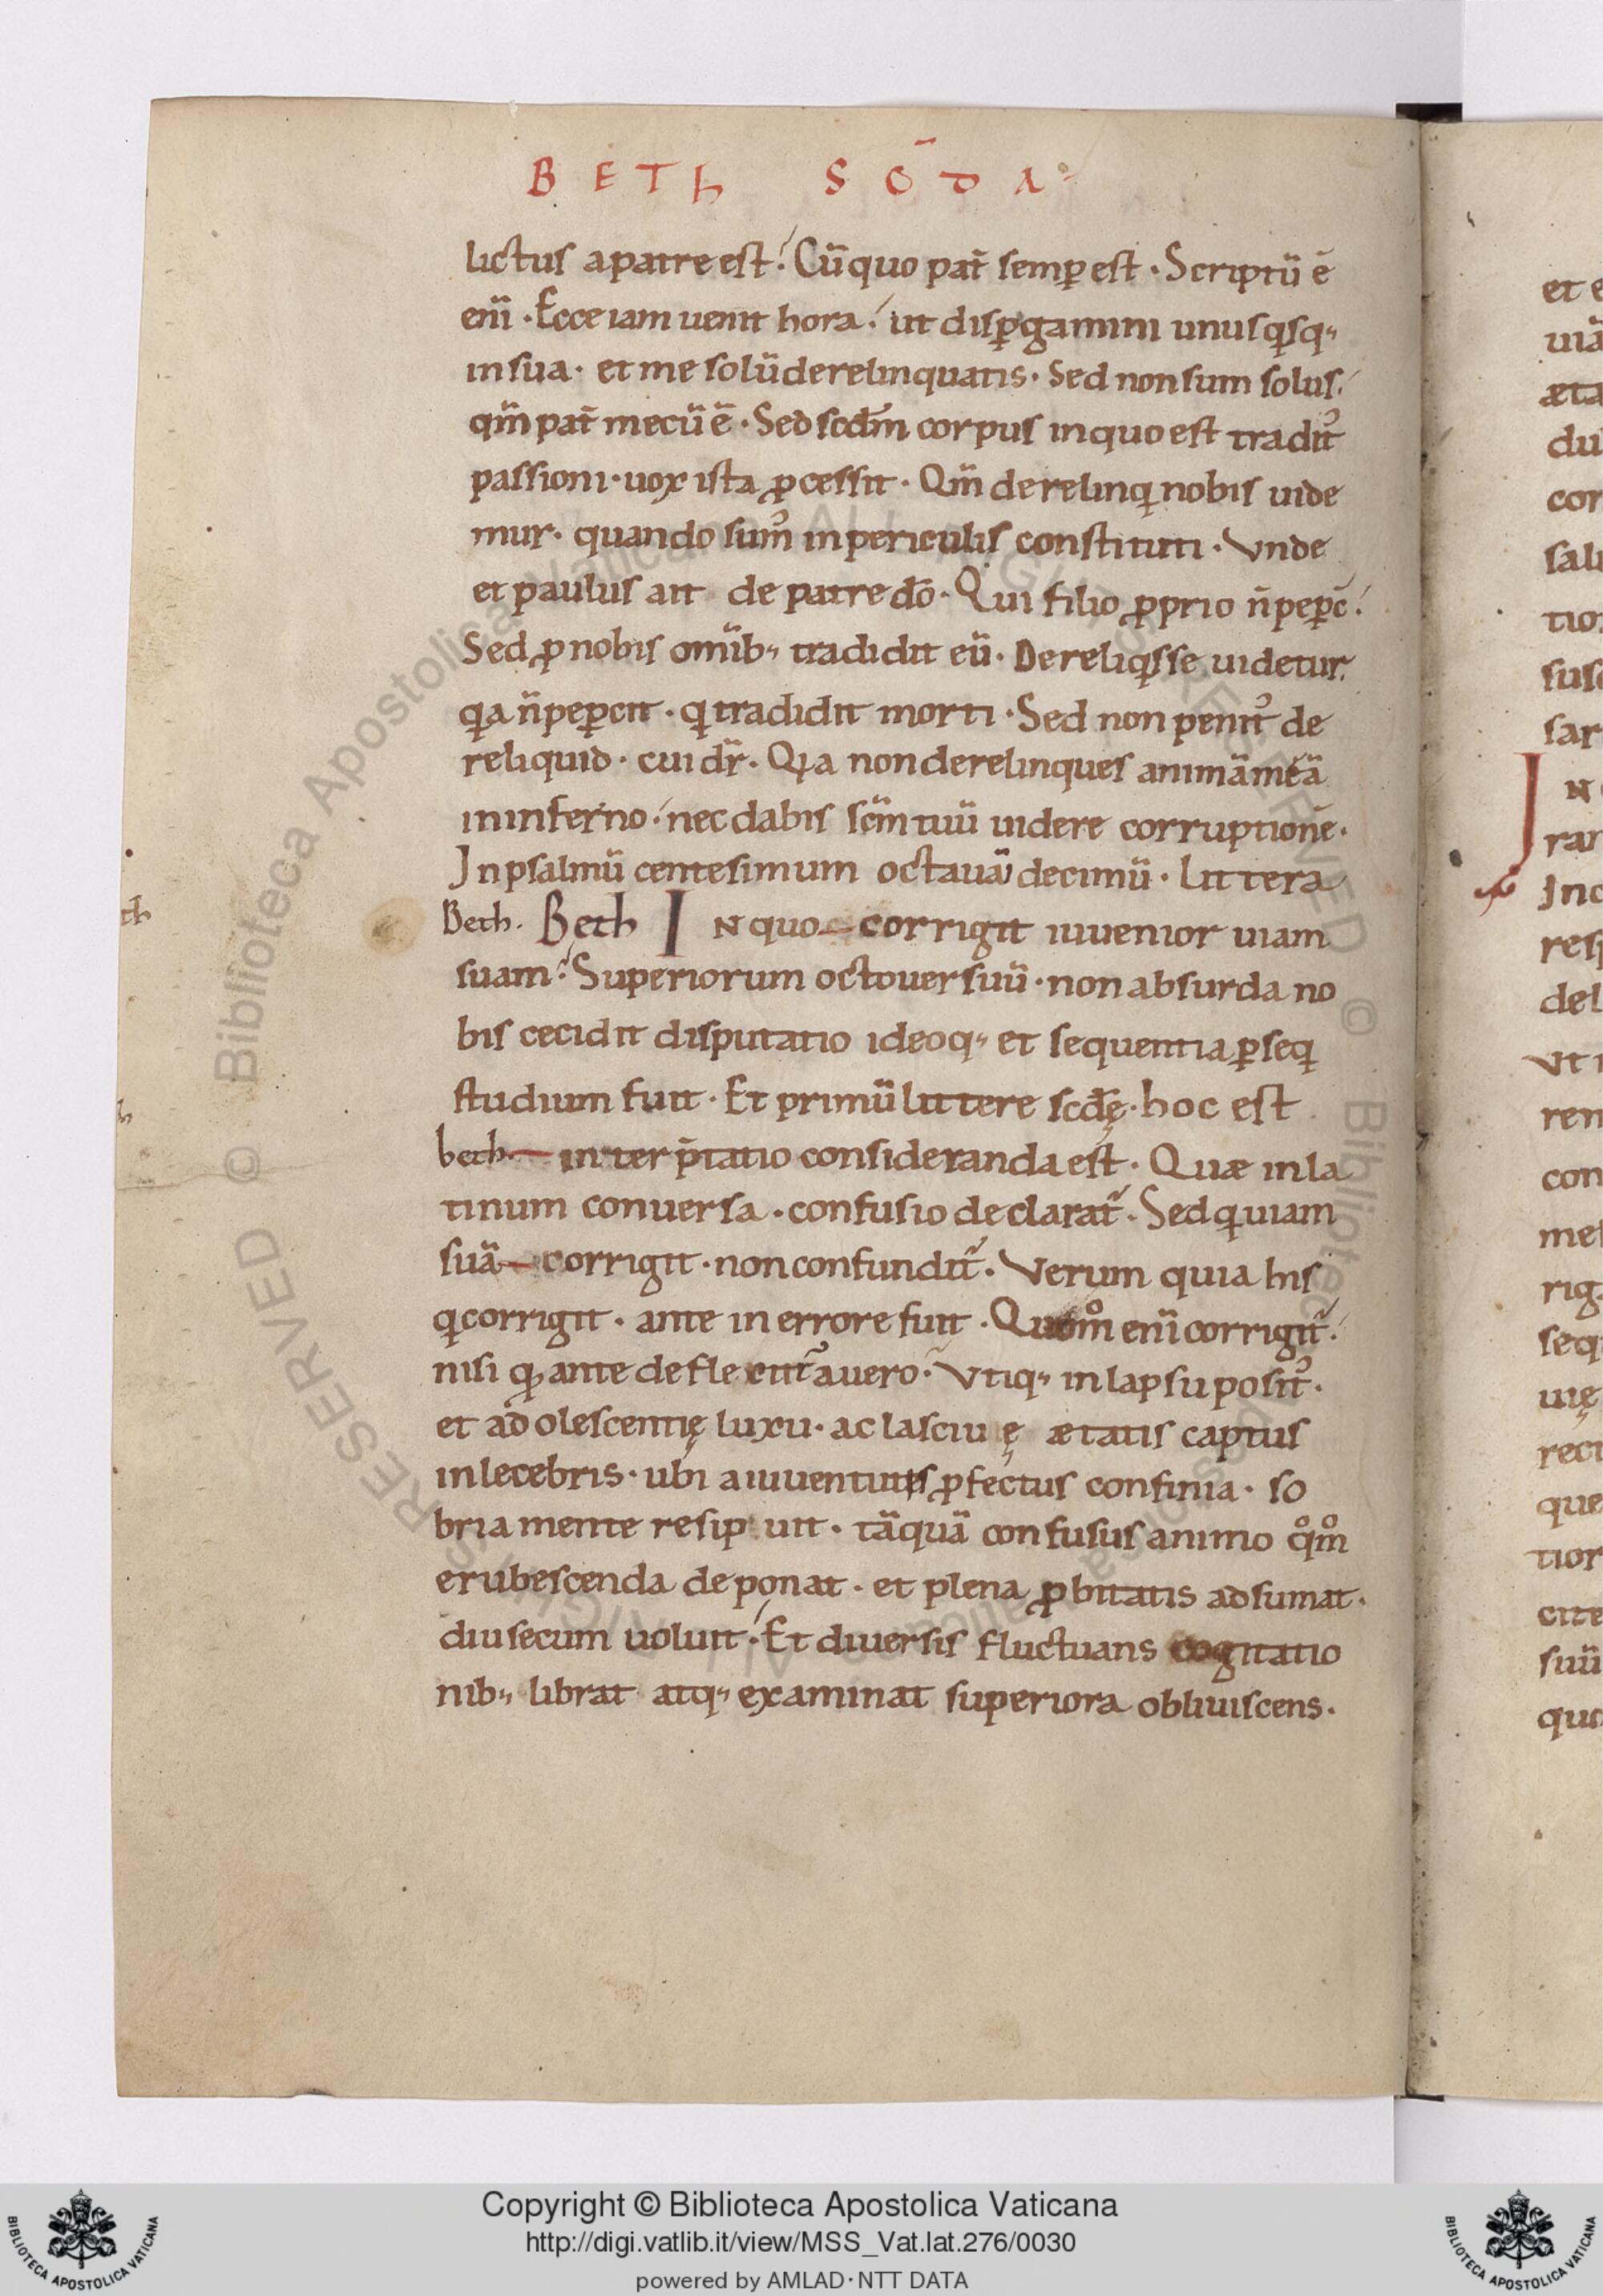 BETh SC̄DA
lictus a patre est? Cū quo pat̄ semꝑ est. Scriptū ē
eni̅. Ecce iam uenit hora. ut disꝑgamini unusqͥsq;
in sua. et me solū derelinquatis. Sed non sum solus.
qm̅ pat̄ mecū ē. Sed scdm̅ corpus in quo est tradit᷒
passioni. uox ista ꝓcessit. Qm̅ derelinqͥ nobis uide
mur. quando sum᷒ in periculis constituti. Vnde
et paulus ait de patre dō. Qui filio ꝓprio n̄ peꝑc̄.
Sed ꝓ nobis omib; tradidit eū. Dereliqͥsse uidetur.
qͥa n̄ peꝑcit. qͥ tradidit morti. Sed non penit᷒ de
reliquid. cui dr̄. Qͥa non derelinques animā meā
in inferno. nec dabis scm̅ tuū uidere corruptionē.
In psalmū centesimum octauū decimū. Littera
Beth. Beth IN quo corrigit iuuenior uiam
suam? Superiorum octo uersuū. non absurda no
bis cecidit disputatio ideoq; et sequentia ꝑseqͥ
studium fuit. Et primū littere scdę. hoc est
beth. interp̄tatio consideranda est. Quæ in la
tinum conuersa. confusio declarat᷑. Sed qͥ uiam
suā corrigit. non confundit᷑. Verum quia his
qͥ corrigit. ante in errore fuit. Quom̊ eni̅ corrigit᷑.
nisi qͥ ante deflexit᷑ a uero. Vtiq; in lapsu posit᷒.
et adolescentię luxu. ac lasciuę ætatis captus
inlecebris. ubi a iuuentutis ꝓfectus confinia. so
bria mente resipuit. tāquā confusus animo qͦm̊
erubescenda deponat. et plena ꝓbitatis adsumat.
diu secum uoluit. Et diuersis fluctuans cogitatio
nib; librat atq; examinat superiora obliuiscens.
Copyright © Biblioteca Apostolica Vaticana
http://digi.vatlib.it/view/MSS_Vat.lat.276/0030
powered by AMLAD·NTT DATA